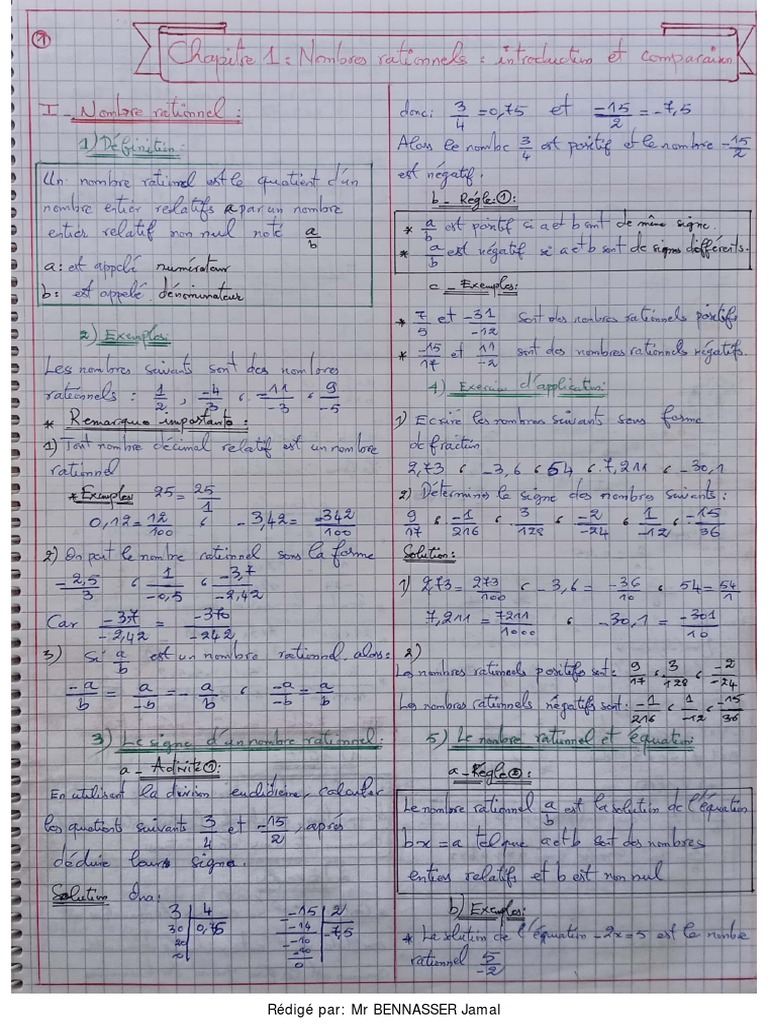 1
Chapitre 1 : Nombres rationnels : introduction et comparaison
I - Nombre rationnel :
1) Définition :
Un nombre rationnel est le quotient d'un
nombre entier relatifs a par un nombre
entier relatif non nul noté a/b
a : est appelé numérateur
b : est appelé dénominateur
2) Exemples
Les nombres suivants sont des nombres
rationnels : 1/2 , -4/3 ، -11/-3 ، 9/-5
* Remarque importante :
1) Tout nombre décimal relatif est un nombre
rationnel
* Exemples 25 = 25/1
0,12 = 12/100 ، -3,42 = -342/100
2) On peut le nombre rationnel sous la forme
-2,5/3 ، 1/-0,5 ، -3,7/-2,42
Car -3,7/-2,42 = -370/-242
3) Si a/b est un nombre rationnel alors :
-a/b = a/-b = - a/b ، -a/-b = a/b
3) Le signe d'un nombre rationnel :
a - Activité ① :
En utilisant la division euclidienne, calculer
les quotients suivants 3/4 et -15/2, après
déduire leurs signe.
Solution
3 | 4
30 | 0,75
20
0
-15 | 2
-14 | -7,5
-10
-10
0
donc : 3/4 = 0,75 et -15/2 = -7,5
Alors le nombe 3/4 est positif et le nombre -15/2
est négatif.
b - Règle ① :
* a/b est positif si a et b sont de même signe.
* a/b est négatif si a et b sont de signes différents.
c - Exemples :
* 7/5 et -31/-12 sont des nombres rationnels positifs
* -15/17 et 11/-2 sont des nombres rationnels négatifs.
4) Exercice d'application :
1) Ecrire les nombres suivants sous forme
de fraction
2,73 ، -3,6 ، 54 ، 7,211 ، -30,1
2) Détermines le signe des nombres suivants :
9/17 ، -1/216 ، 3/128 ، -2/-24 ، 1/-12 ، -15/36
Solution :
1) 2,73 = 273/100 ، -3,6 = -36/10 ، 54 = 54/1
7,211 = 7211/1000 ، -30,1 = -301/10
2)
Les nombres rationnels positifs sont : 9/17 ، 3/128 ، -2/-24
Les nombres rationnels négatifs sont : -1/216 ، 1/-12 ، -15/36
5) Le nombre rationnel et équation
a - Règle ② :
Le nombre rationnel a/b est la solution de l'équation
bx = a tel que a et b sont des nombres
entiers relatifs et b est non nul
b) Exemples :
* La solution de l'équation -2x = 5 est le nombre
rationnel 5/-2
Rédigé par: Mr BENNASSER Jamal